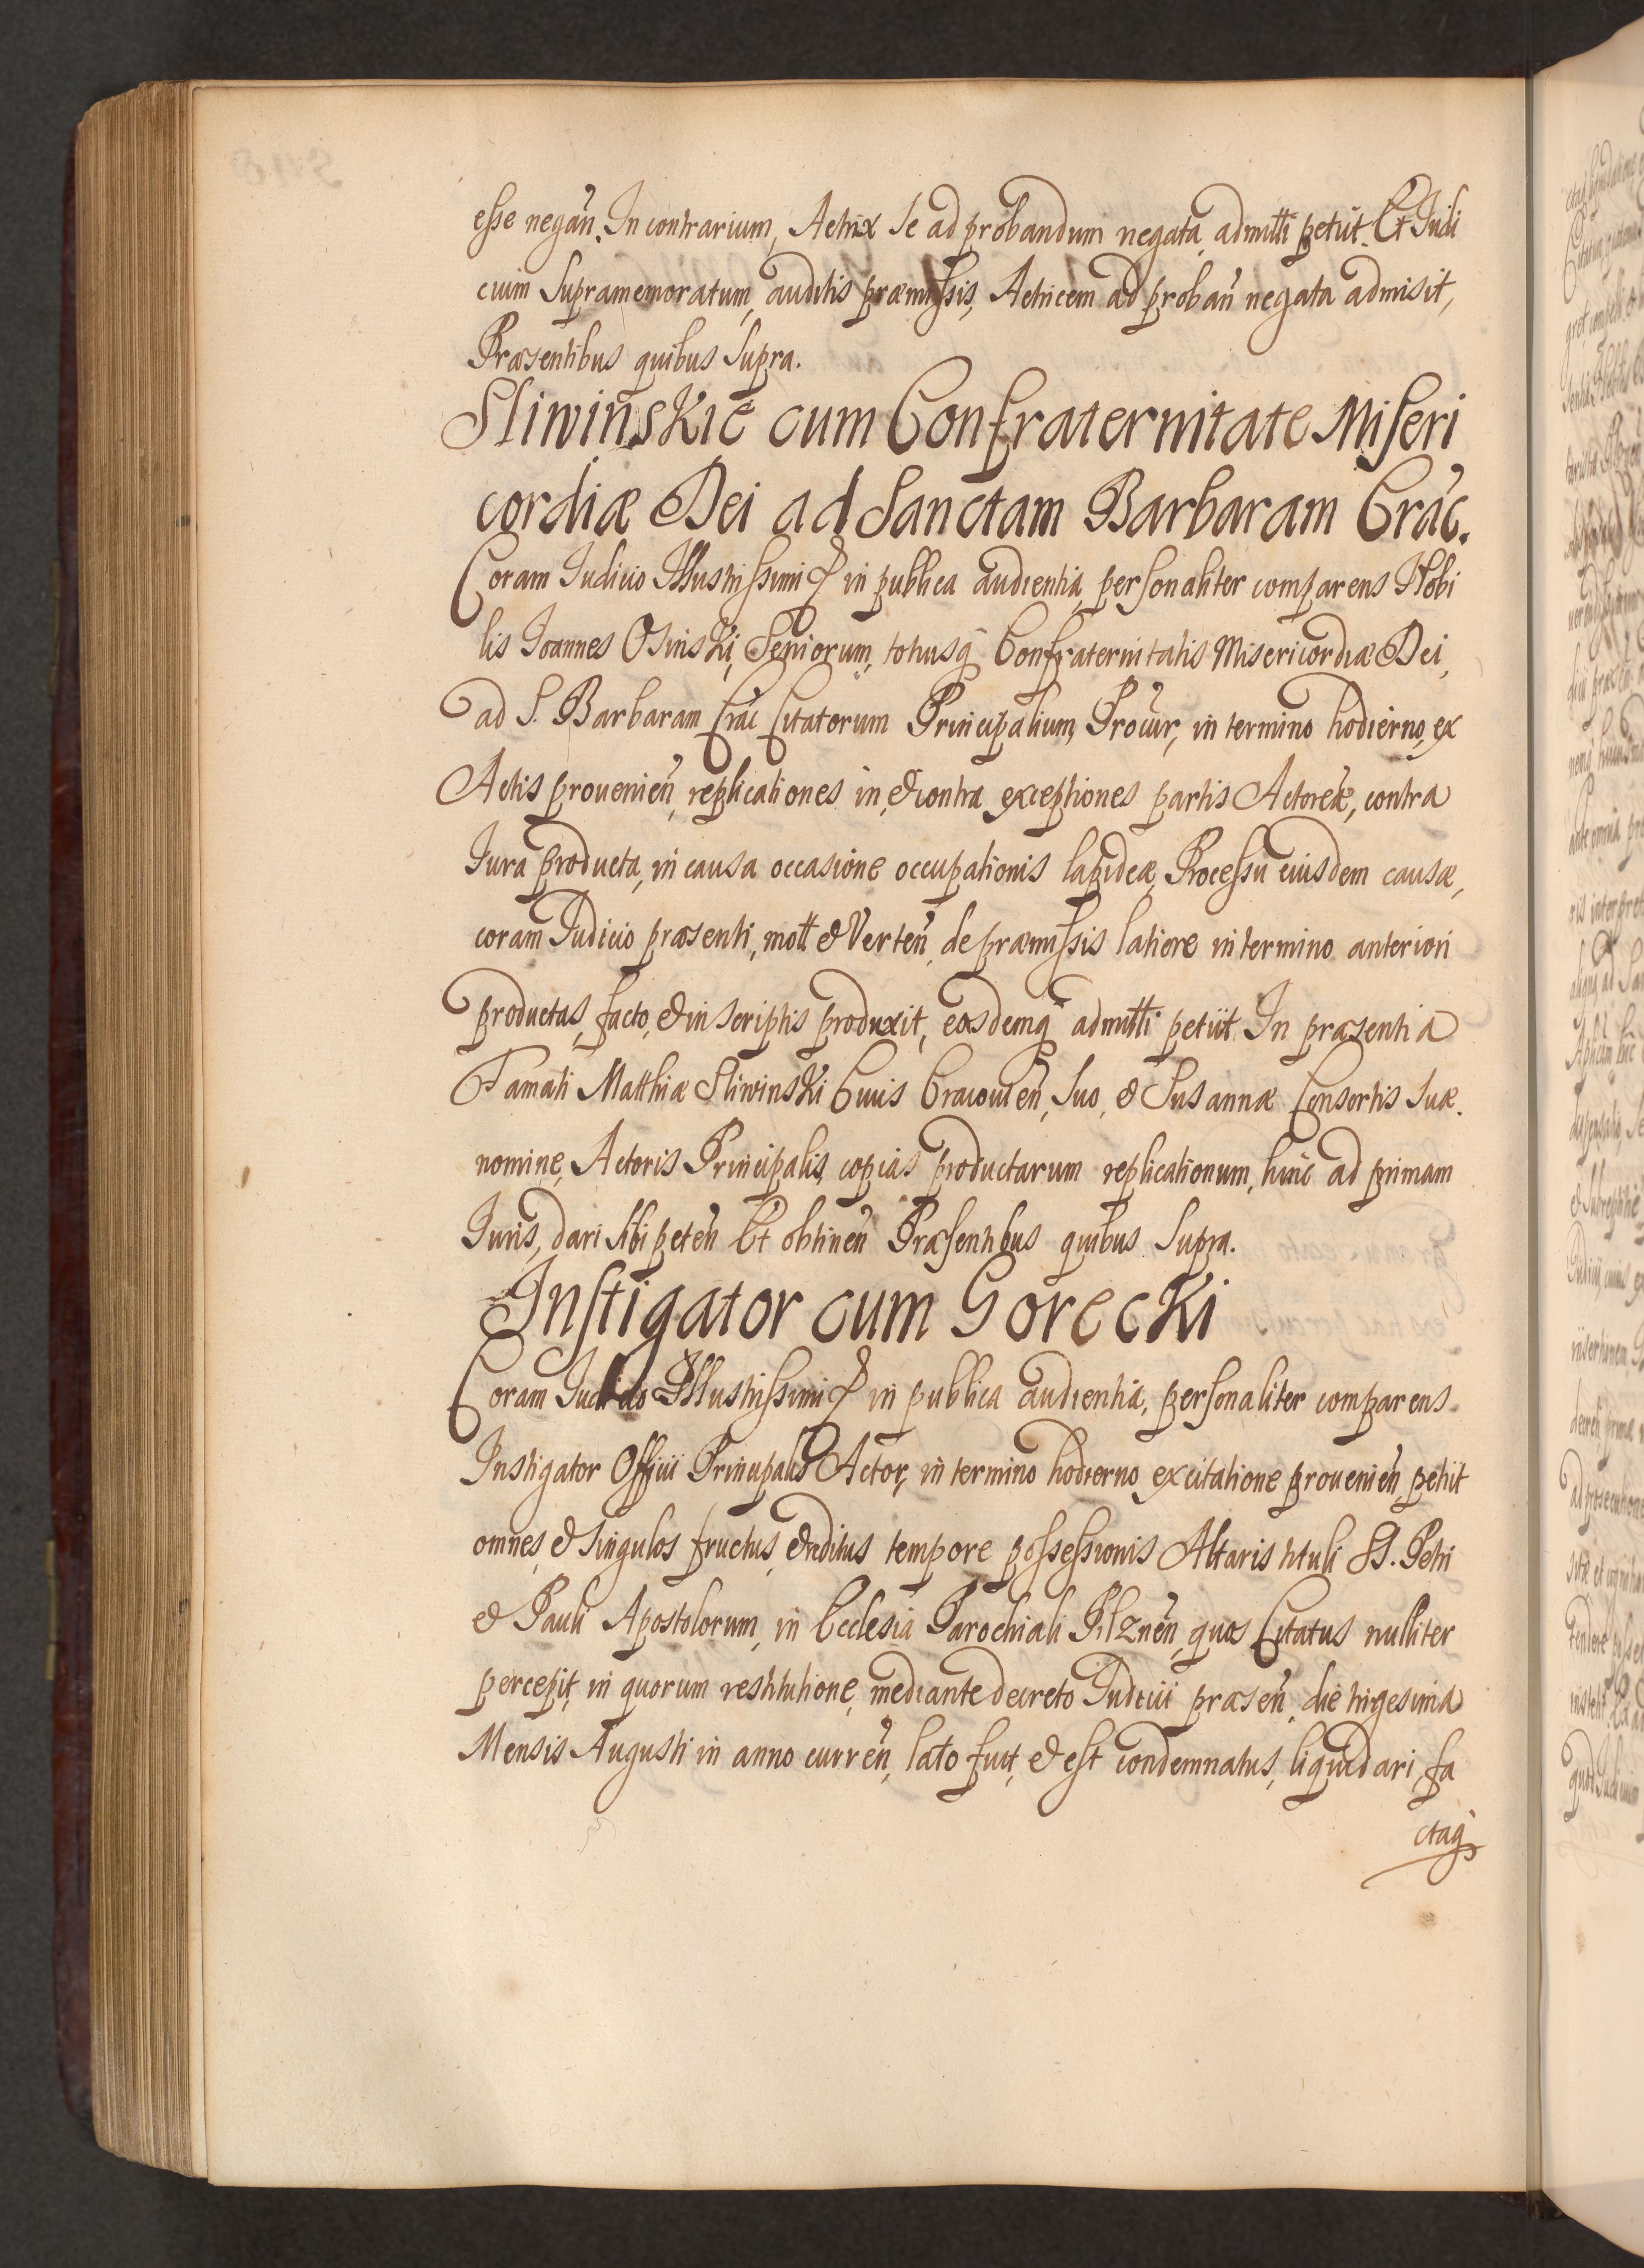 esse negan̄. In contrarium, Actrix se ad probandum negata admitti petiit. Et Judi
cium supramemoratum, auditis præmissis, Actricem ad proban̄ negata admisit,
Præsentibus quibus supra.
Sliwinskie cum Confraternitate Miseri
cordiæ Dei ad Sanctam Barbaram Crac.
Coram Judicio Illustrissimi & in publica audientia personaliter comparens Nobi
lis Joannes Osinski, Seniorum, totiusq̄ Confraternitatis Misericordiæ Dei,
ad S. Barbaram Crac Citatorum Principalium, Procur, in termino hodierno, ex
Actis provenien̄, replicationes in, & contra exceptiones partis Actoreæ, contra
Jura producta, in causa occasione occupationis lapideæ, Processu eiusdem causæ,
coram Judicio præsenti, mott & Verten̄, de præmissis latiore in termino anteriori
productas, facto, & in scriptis produxit, easdemq̄ admitti petiit. In præsentia
Famati Matthiæ Sliwinski Civis Cracovien̄, suo, & Susannæ Consortis suæ
nomine, Actoris Principalis, copias productarum replicationum, hinc ad primam
Juris, dari sibi peten̄ Et obtinen̄ Præsentibus quibus supra.
Instigator cum Gorecki
Coram Judicio Illustrissimi & in publica audientia, personaliter comparens
Instigator Officii Principalis Actor, in termino hodierno, ex citatione provenien̄, petiit
omnes, & singulos fructus, & reditus tempore possessionis Altaris tituli SS. Petri
& Pauli Apostolorum, in Ecclesia Parochiali Pilznen̄, quos Citatus nulliter
percepit, in quorum restitutione, mediante decreto Judicii præsen̄, die trigesima
Mensis Augusti in anno curren̄, lato fuit, & est condemnatus, liquidari, fa
ctaq̄